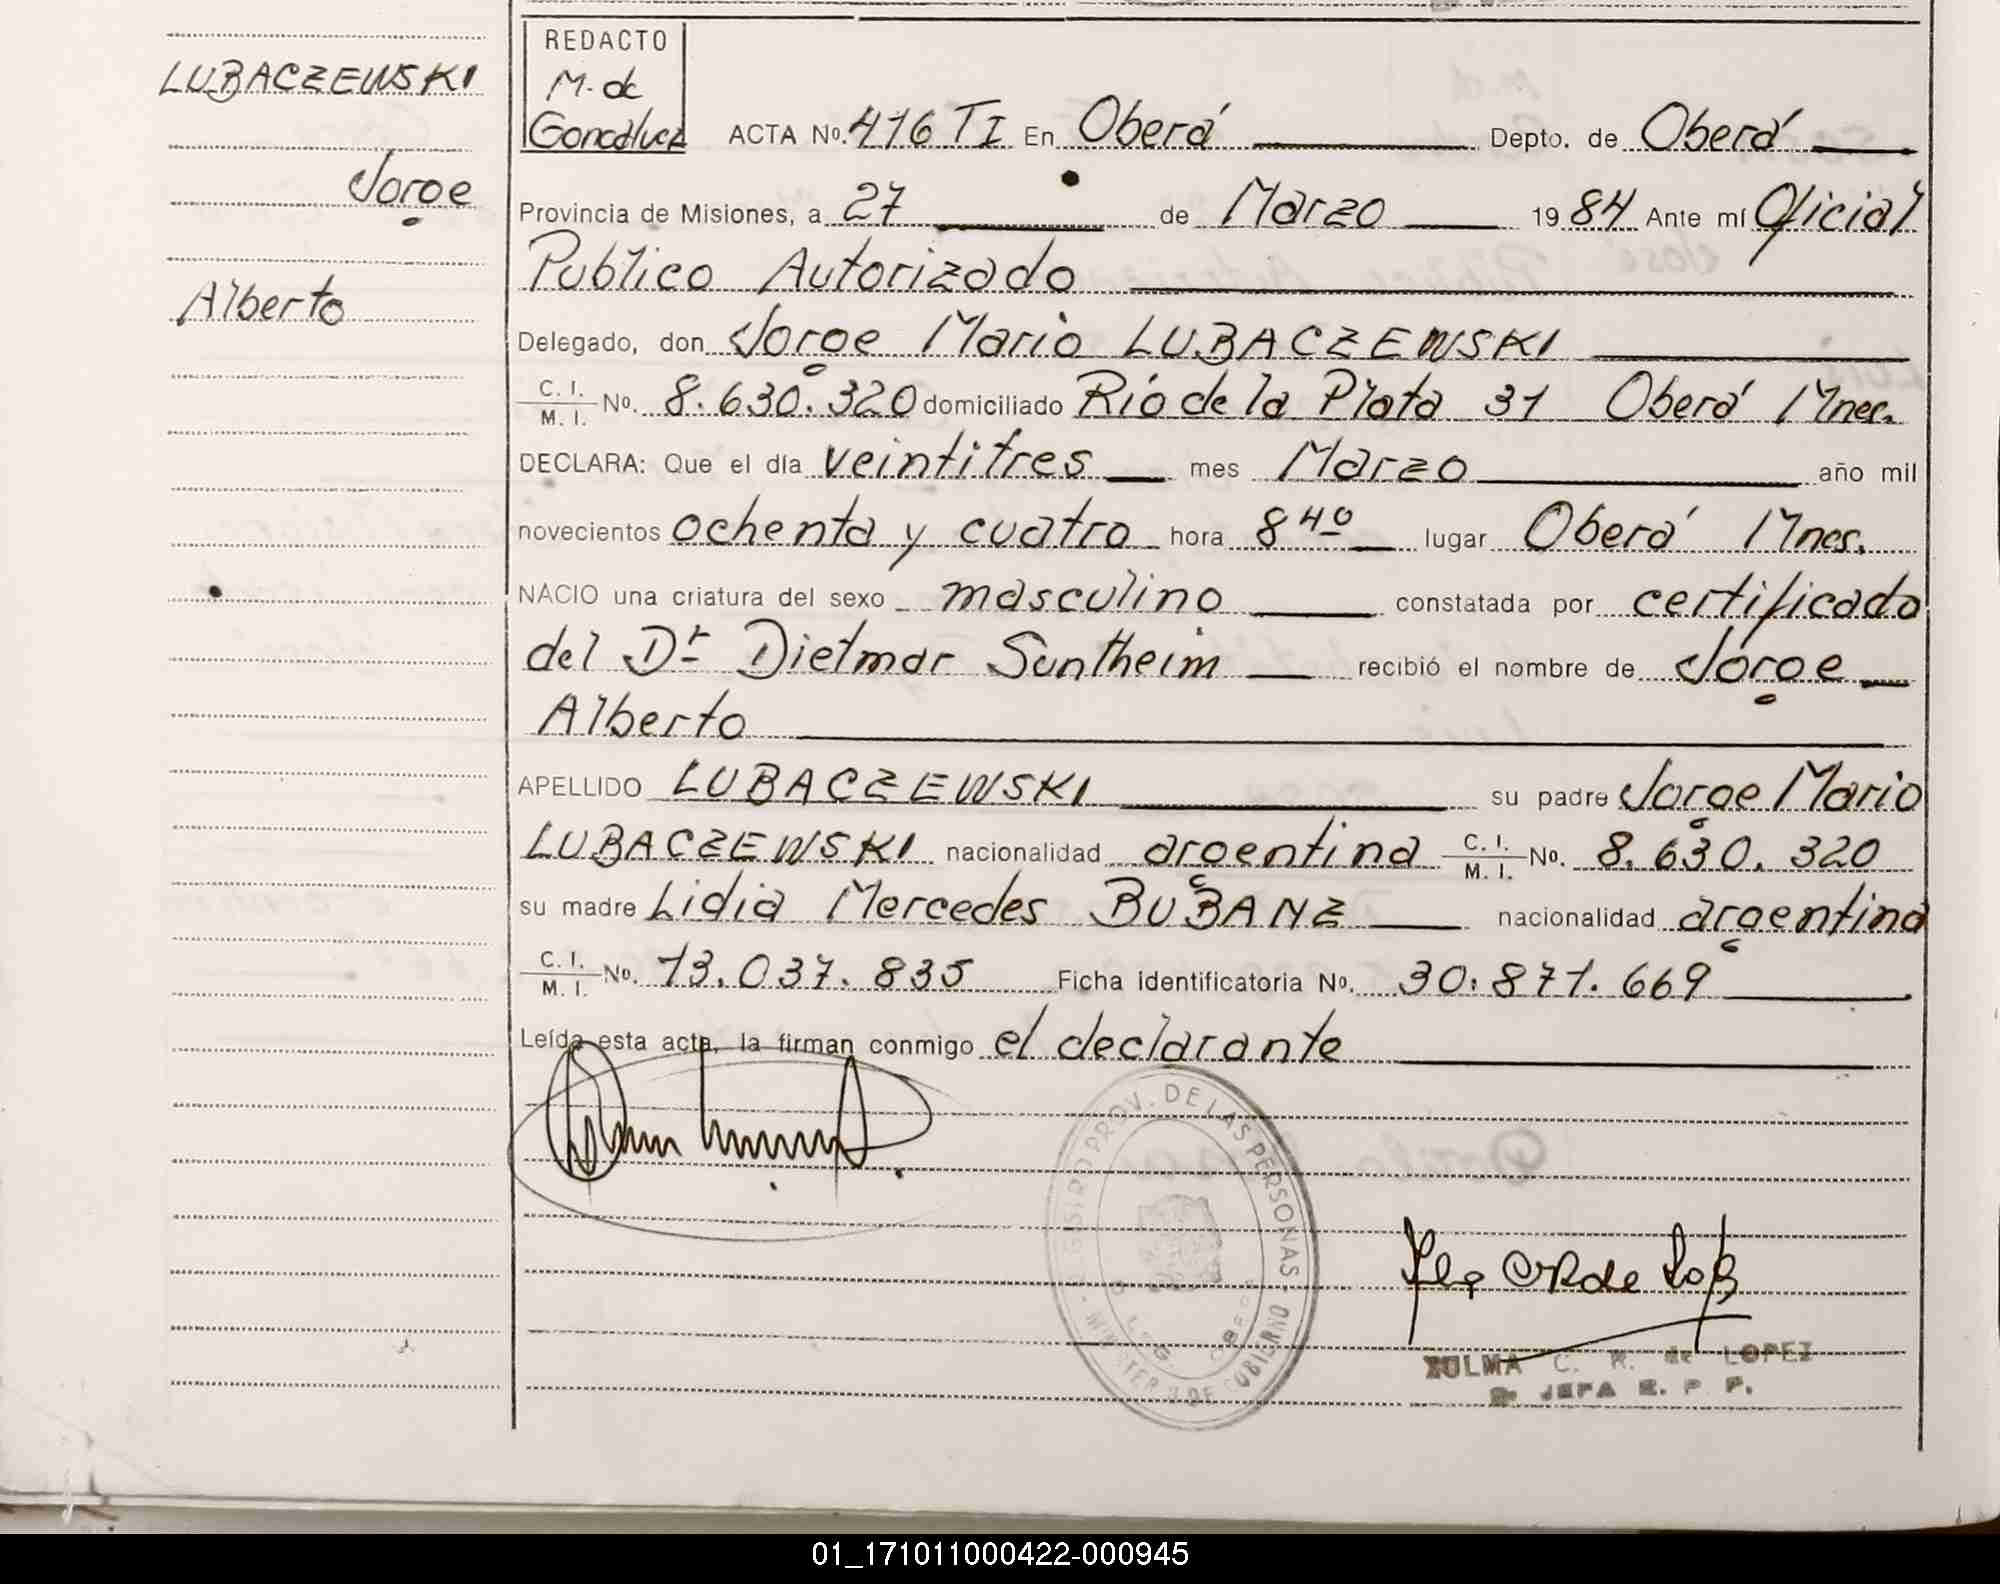 LUBACZEWSKI
Jorge
Alberto
REDACTO
M. de
Goncalvez
ACTA No. 416 TI En Oberá Depto. de Oberá
Provincia de Misiones, a 27 de Marzo 1984 Ante mí Oficial
Publico Autorizado
Delegado, don Jorge Mario LUBACZEWSKI
C. I.
M. I. No. 8.630.320 domiciliado Río de la Plata 31 Oberá Mnes.
DECLARA: Que el día veintitres mes Marzo año mil
novecientos ochenta y cuatro hora 8 40 lugar Oberá Mnes.
NACIO una criatura del sexo masculino constatada por certificado
del Dr Dietmar Suntheim recibió el nombre de Jorge
Alberto
APELLIDO LUBACZEWSKI su padre Jorge Mario
LUBACZEWSKI nacionalidad argentina C. I. M. I. No. 8.630.320
su madre Lidia Mercedes BUBANZ nacionalidad argentina
C. I.
M. I. No. 13.037.835 Ficha identificatoria No. 30.871.669
Leída esta acta, la firman conmigo el declarante
REGISTRO PROV. DE LAS PERSONAS - MINISTERIO DE GOBIERNO
ZULMA C. R. de LOPEZ
JEFA R. P. P.
01_171011000422-000945